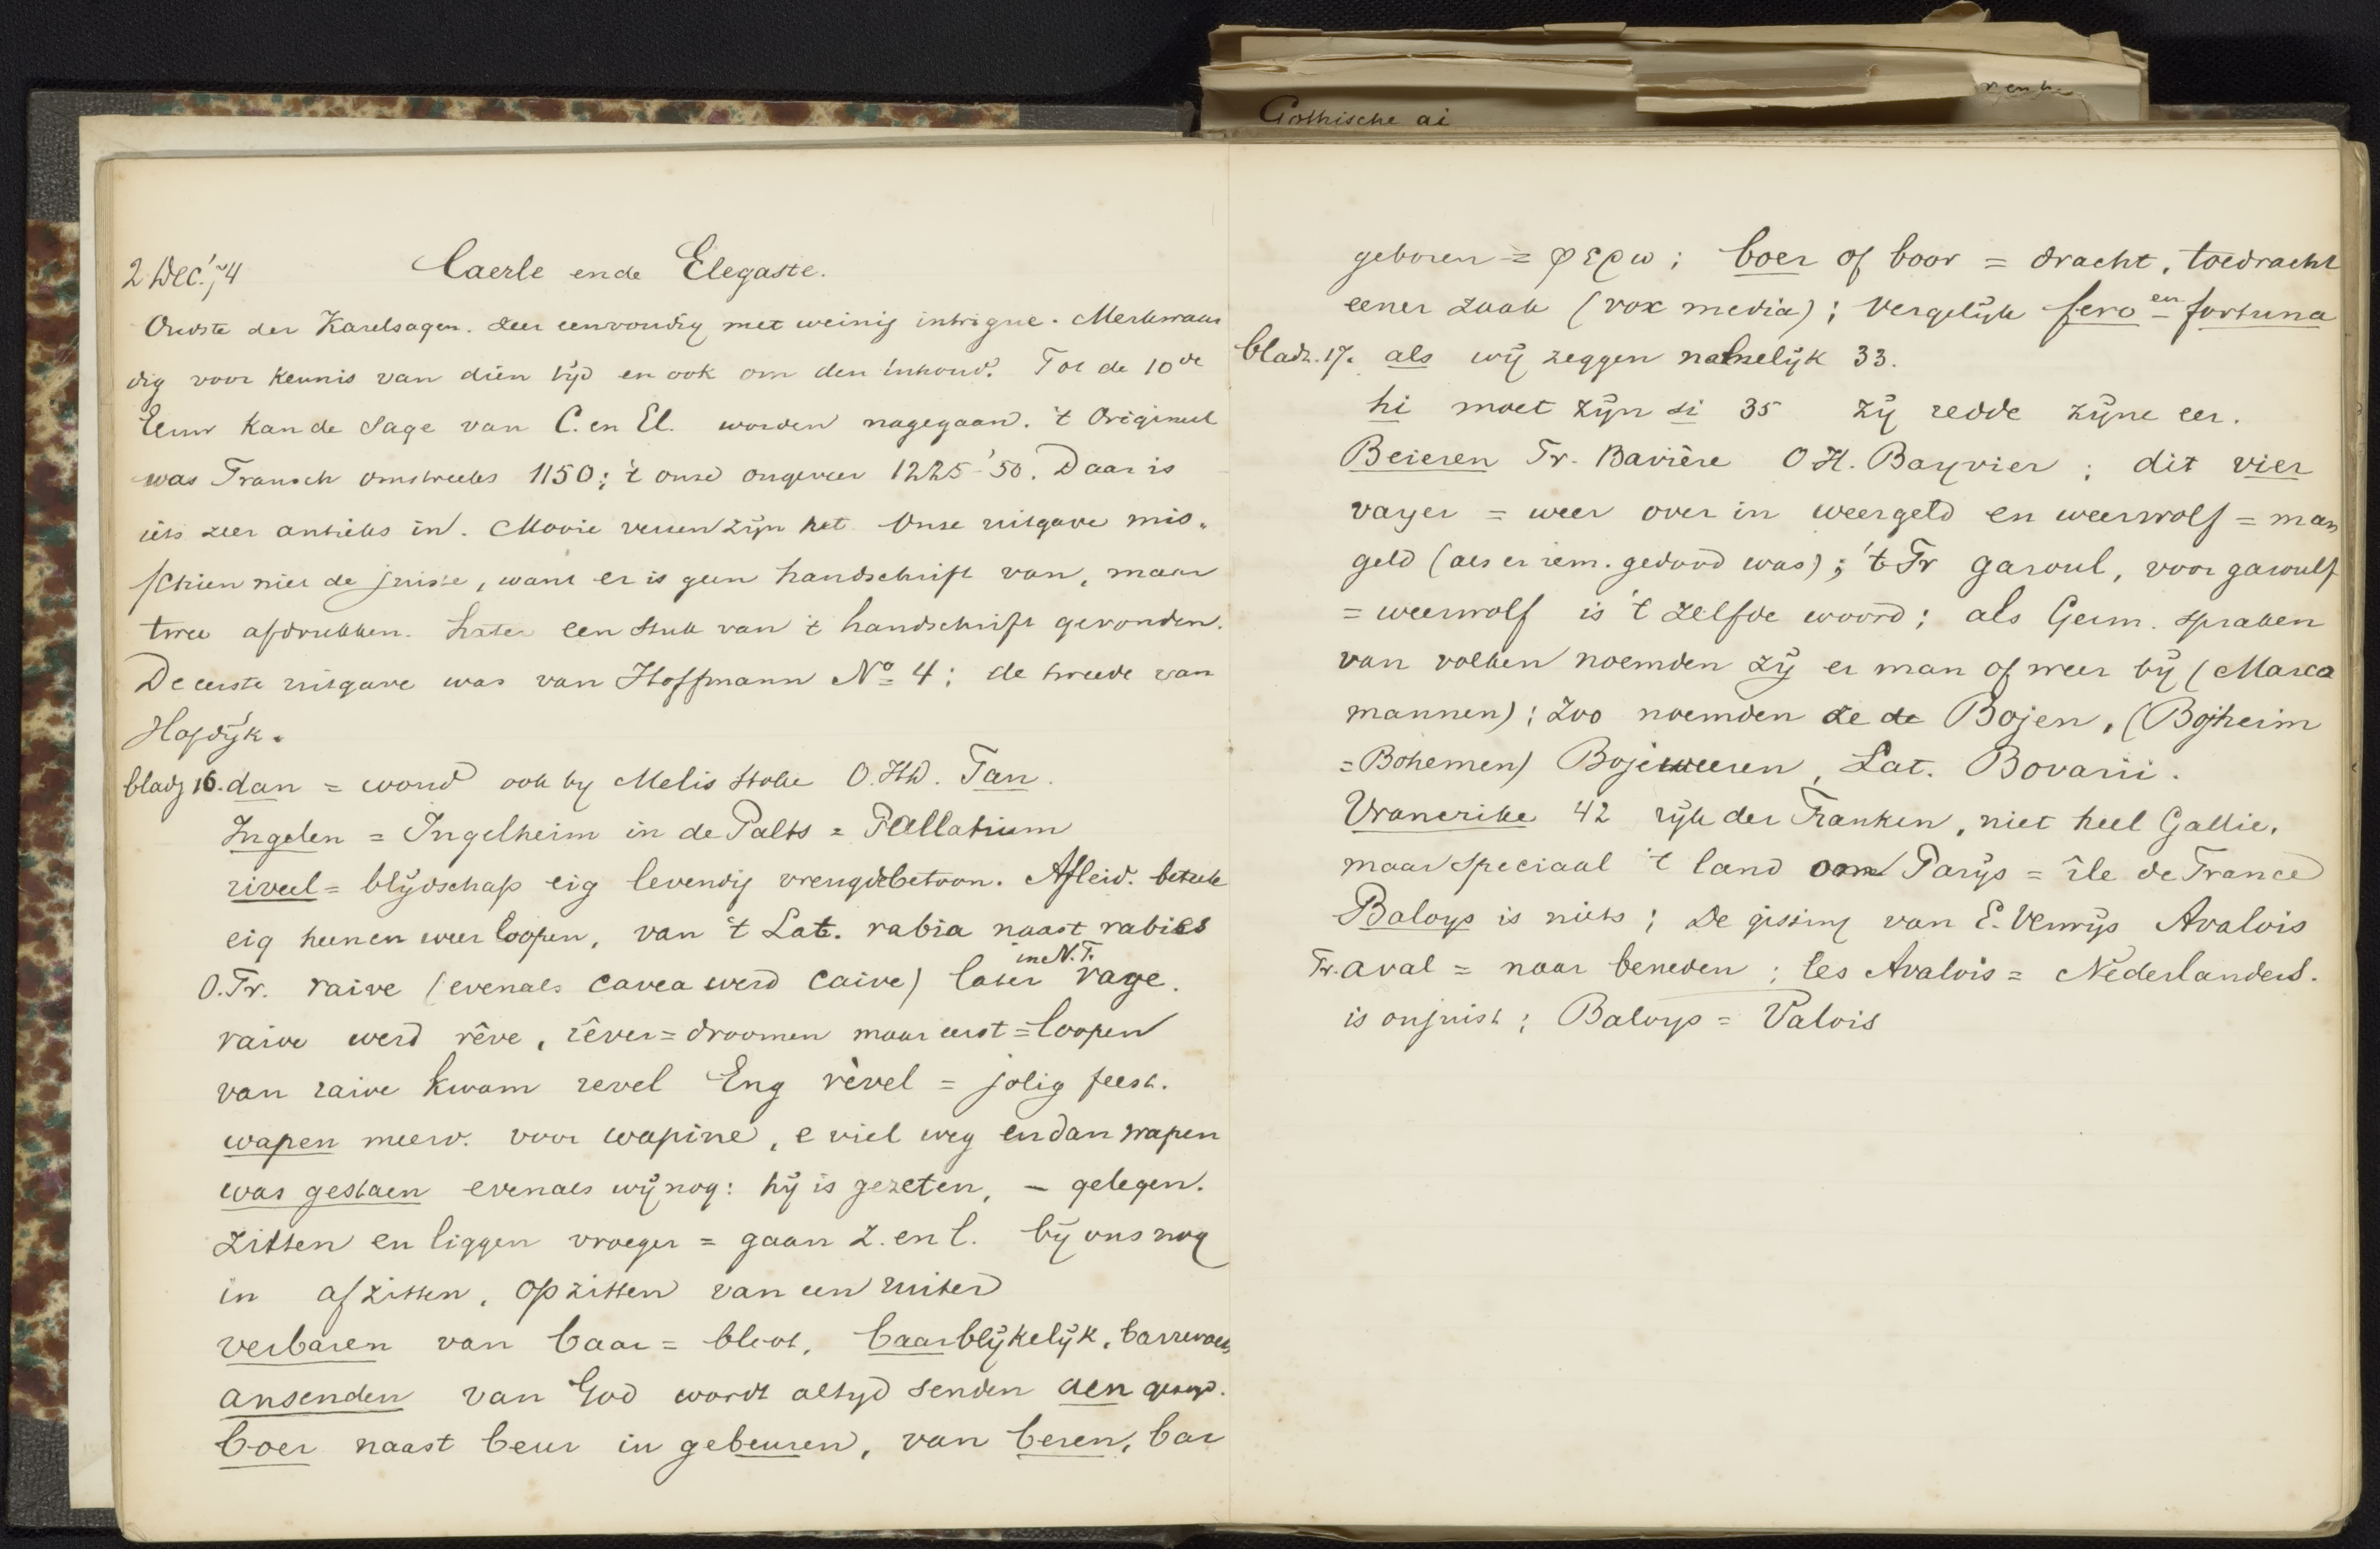 Gothische ai
2 Dec. '74 Caerle ende Elegaste.
Oudste der Karelsagen. Zeer eenvoudig met weinig intrigue. Merkwaar
dig voor kennis van dien tijd en ook om den inhoud. Tot de 10de
Eeuw kan de Sage van C. en El. worden nagegaan. 't Origineel
was Fransch omstreeks 1150; 't onze ongeveer 1225-'50. Daar is
iets zeer antieks in. Mooie verzen zijn het. Onze uitgave mis-
schien niet de juiste, want er is geen handschrift van, maar
twee afdrukken. Later een stuk van 't handschrift gevonden.
De eerste uitgave was van Hoffmann No 4; de tweede van
Hofdijk.
bladz 16. dan = woud ook by Melis Stoke O.Hd. Tan.
Ingelen = Ingelheim in de Palts = Pallatium
riveel = blijdschap eig levendig vreugdebetoon. Afleid. beteek
eig heen en weer loopen, van 't Lat. rabia naast rabies
in N.F.
O.Fr. raive (evenals cavea werd caive) later rage.
raive werd rêve, rêver = droomen maar eerst = loopen
van raive kwam revel Eng rèvel = jolig feest.
wapen meerv. voor wapine, e viel weg en dan wapen
was gestaen evenals wij nog: hij is gezeten, – gelegen.
zitten en liggen vroeger = gaan z. en l. bij ons nog
in afzitten, opzitten van een ruiter
verbaren van baar = bloot, baarblijkelijk, barrevoets
ansenden van God wordt altijd senden aen gezegd.
boer naast beur in gebeuren, van beren, bar
geboren = φερω; boer of boor = dracht, toedracht
eener zaak (vox media); vergelijk fero en fortuna
bladz. 17. als wij zeggen namelijk 33.
hi moet zijn si 35 zij redde zijne eer.
Beieren Fr. Bavière O H. Bayvier; dit vier
vayer = weer over in weergeld en weerwolf = man
geld (als er iem. gedood was); 't Fr garoul, voor garoulf
= weerwolf is 't zelfde woord; als Germ. spraken
van volken noemden zij er man of weer bij (Marco
mannen); zoo noemden ze de Bojen, (Bojheim
= Bohemen) Bojeweeren, Lat. Bovarii.
Vrancrike 42 rijk der Franken, niet heel Gallie,
maar speciaal 't land om Parijs = île de France
Baloys is niets; De gissing van E. Verwijs Avalois
Fr. aval = naar beneden; les Avalois = Nederlanders.
is onjuist; Baloys = Valois